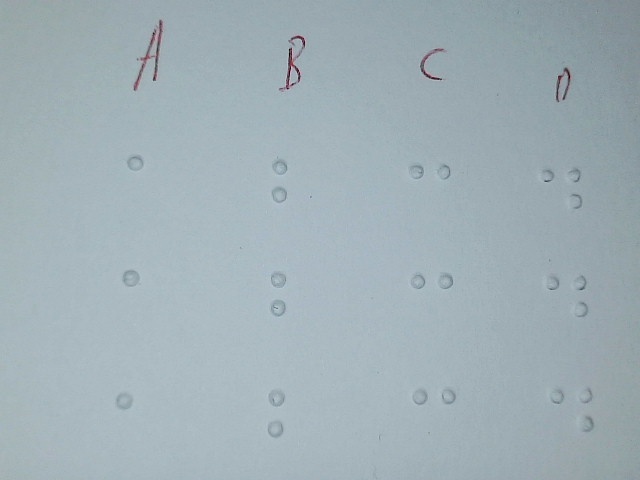 A B C D
⠁ ⠃ ⠉ ⠙
⠁ ⠃ ⠉ ⠙
⠁ ⠃ ⠉ ⠙